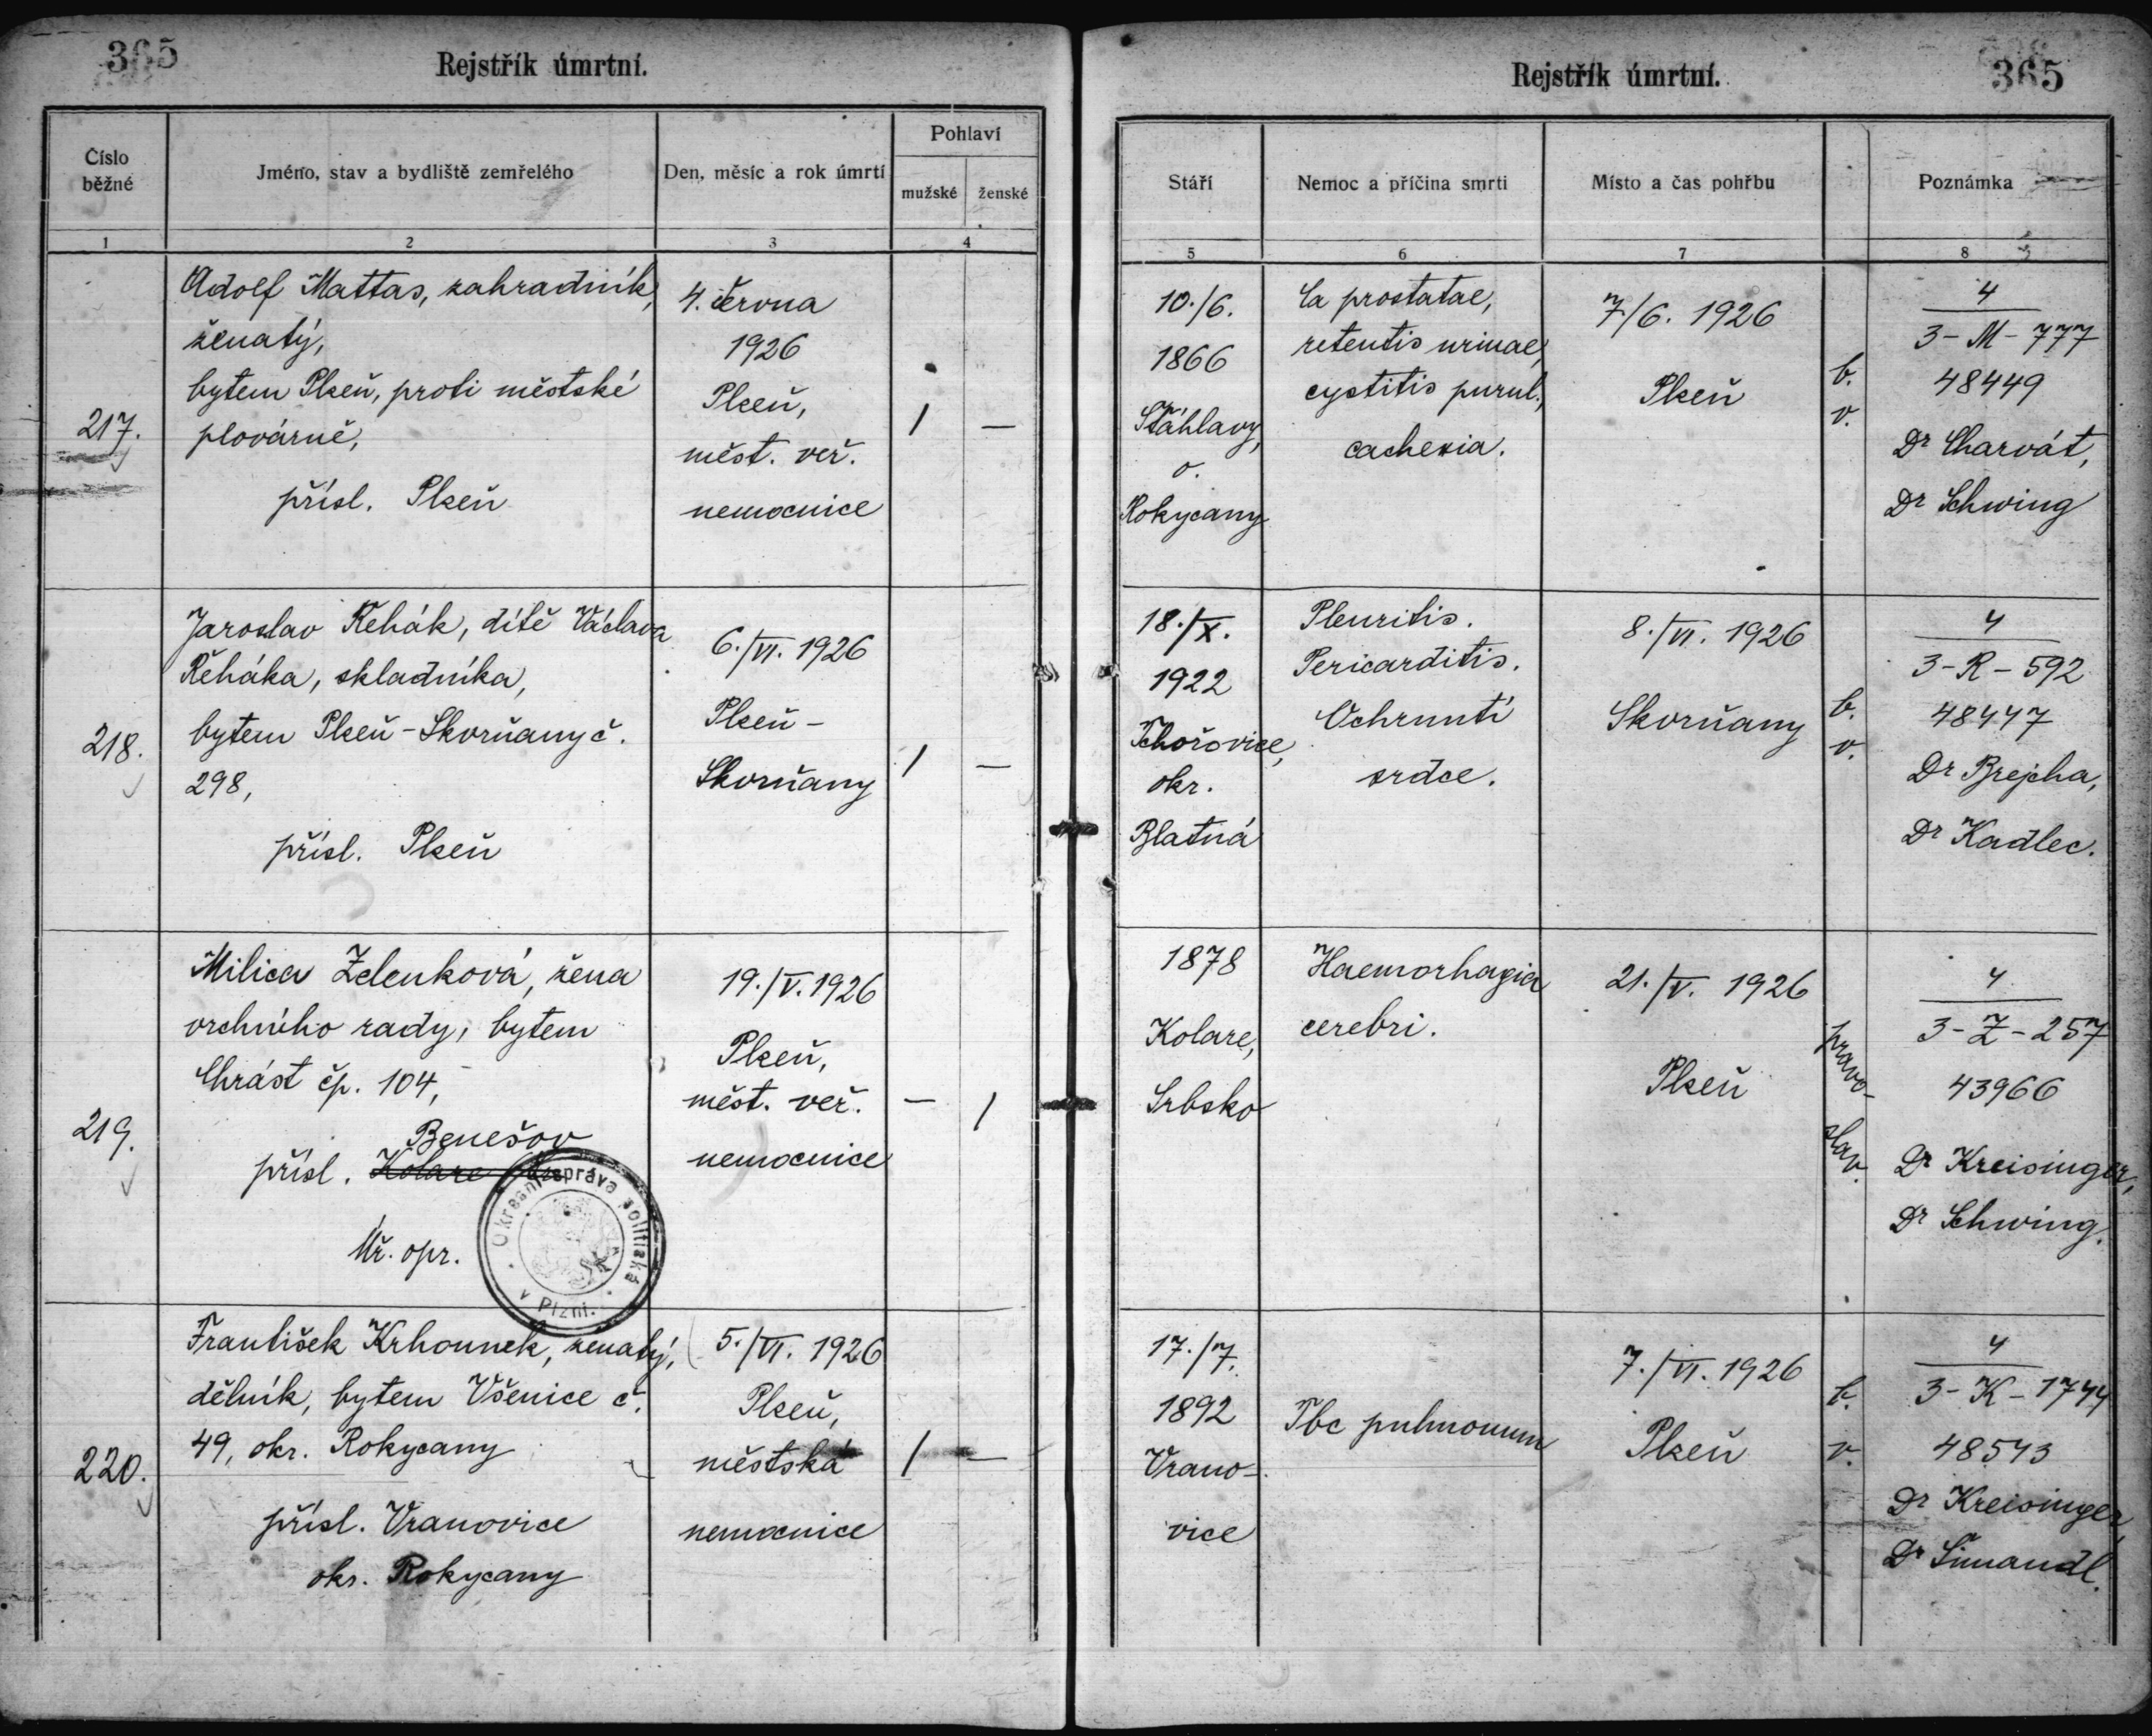 365
Rejstřík úmrtní.
Číslo
běžné
Jméno, stav a bydliště zemřelého
Den, měsíc a rok úmrtí
Pohlaví
mužské
ženské
1
2
3
4
217.
Adolf Mattas, zahradník,
ženatý,
bytem Plzeň, proti městské
plovárně,
přísl. Plzeň
4. června
1926
Plzeň,
měst. veř.
nemocnice
/
—
218.
Jaroslav Řehák, dítě Václava
Řeháka, skladníka,
bytem Plzeň-Skvrňany č.
298,
přísl. Plzeň
6./VI. 1926
Plzeň-
Skvrňany
/
—
219.
Milica Zelenková, žena
vrchního rady, bytem
Chrást čp. 104,
Benešov
přísl. Kolare
Úř. opr.
Okresní správa politická
v Plzni.
19./V. 1926
Plzeň,
měst. veř.
nemocnice
—
/
220.
František Krhounek, ženatý,
dělník, bytem Všenice č.
49, okr. Rokycany
přísl. Vranovice
okr. Rokycany
5./VI. 1926
Plzeň,
městská
nemocnice
/
—
Rejstřík úmrtní.
365
Stáří
Nemoc a příčina smrti
Místo a čas pohřbu
Poznámka
5
6
7
8
10./6.
1866
Šťáhlavy,
o.
Rokycany
Ca prostatae,
retentis urinae,
cystitis purul.,
cachexia.
7/6. 1926
Plzeň
b.
v.
4
3-M-777
48449
Dr Charvát,
Dr Schwing
18./X.
1922
Tchořovice,
okr.
Blatná
Pleuritis.
Pericarditis.
Ochrnutí
srdce.
8./VI. 1926
Skvrňany
b.
v.
4
3-R-592
48447
Dr Brejcha,
Dr Kadlec.
1878
Kolare,
Srbsko
Haemorhagia
cerebri.
21./V. 1926
Plzeň
pravo-
slav.
4
3-Z-257
43966
Dr Kreisinger,
Dr Schwing.
17./7.
1892
Vrano-
vice
Tbc pulmonum
7./VI. 1926
Plzeň
b.
v.
4
3-K-1744
48543
Dr Kreisinger,
Dr Šimandl.